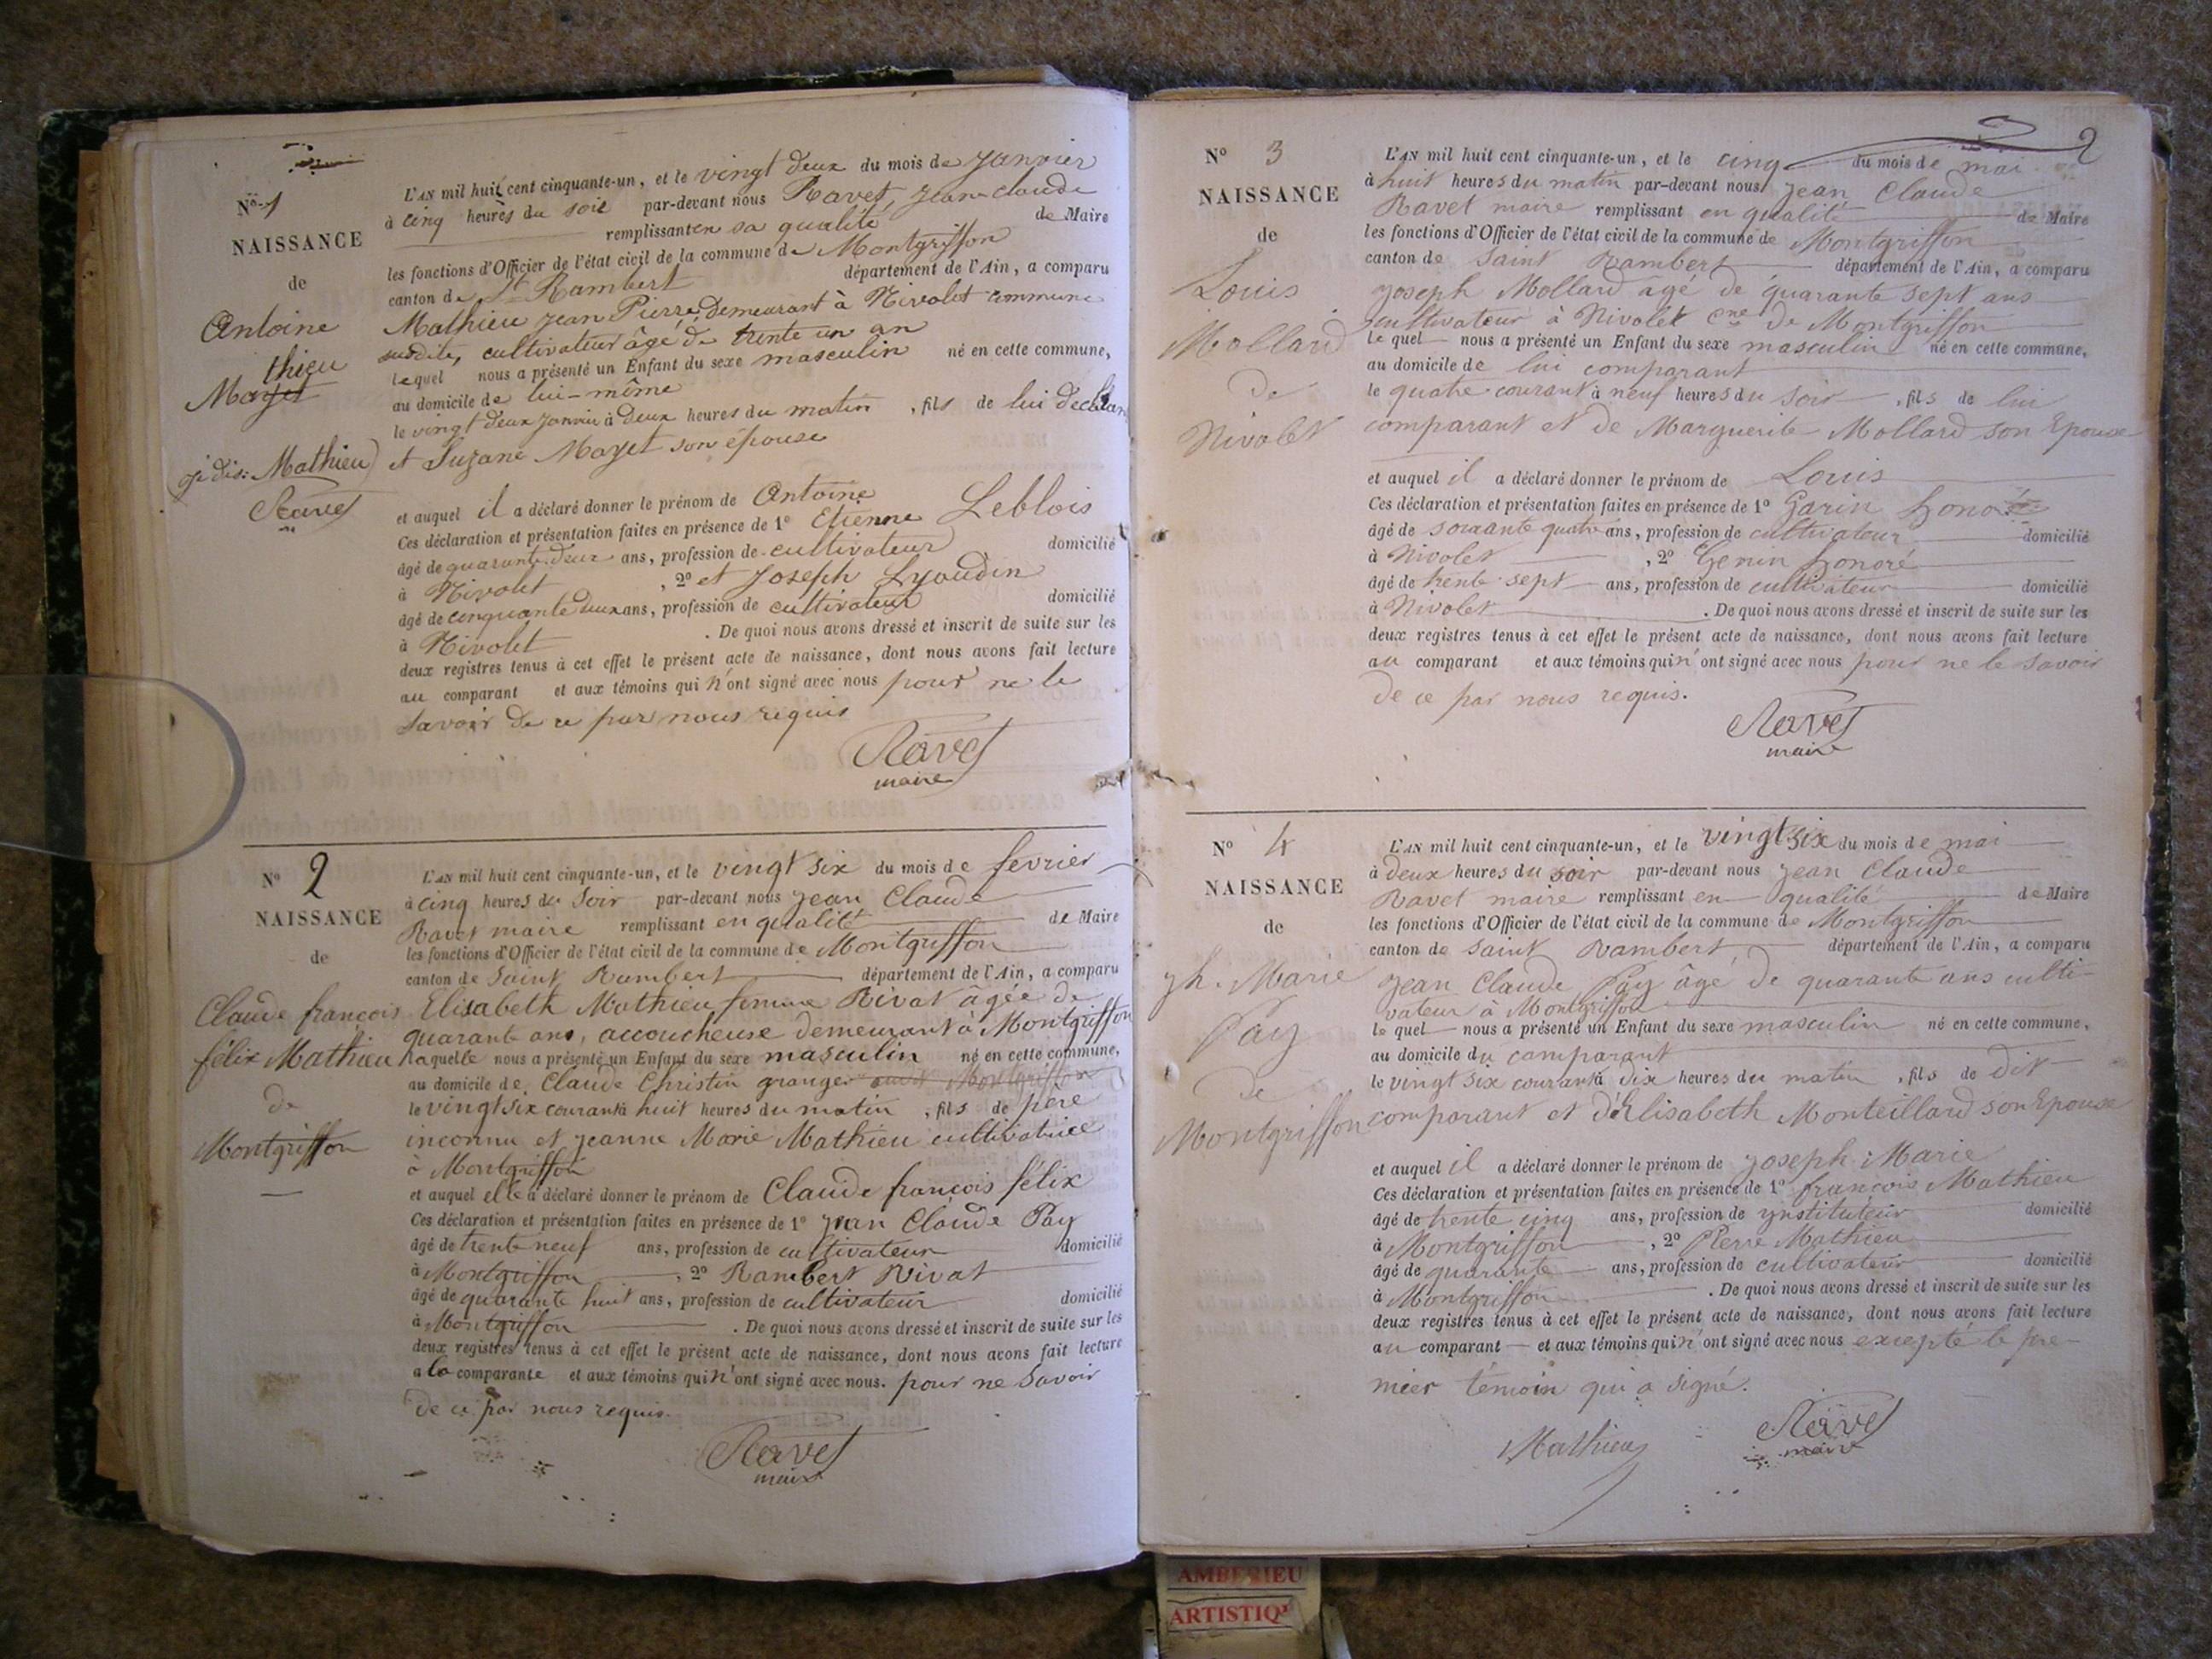 Nº 1
NAISSANCE
de
Antoine
thieu
Mayet
je dis: Mathieu
Ravet
L'AN mil huit cent cinquante-un, et le vingt deux du mois de Janvier
à cinq heures du soir par-devant nous Ravet, Jean-Claude
remplissant en sa qualité de Maire
les fonctions d'Officier de l'état civil de la commune de Montgriffon
canton de St Rambert département de l'Ain, a comparu
Mathieu Jean Pierre, demeurant à Nivolet commune
susdite, cultivateur âgé de trente un an
lequel nous a présenté un Enfant du sexe masculin né en cette commune,
au domicile de lui-même
le vingt deux Janvier à deux heures du matin , fils de lui declarant
et Suzane Mayet son épouse
et auquel il a déclaré donner le prénom de Antoine
Ces déclaration et présentation faites en présence de 1º Etienne Leblois
âgé de quarante deux ans, profession de cultivateur domicilié
à Nivolet , 2º et Joseph Lyaudin
âgé de cinquante deux ans, profession de cultivateur domicilié
à Nivolet . De quoi nous avons dressé et inscrit de suite sur les
deux registres tenus à cet effet le présent acte de naissance, dont nous avons fait lecture
au comparant et aux témoins qui n'ont signé avec nous pour ne le
savoir de ce par nous requis
Ravet
maire
Nº 2
NAISSANCE
de
Claude françois
félix Mathieu
de
Montgriffon
L'AN mil huit cent cinquante-un, et le vingt six du mois de fevrier
à cinq heures du soir par-devant nous Jean Claude
Ravet maire remplissant en qualité de Maire
les fonctions d'Officier de l'état civil de la commune de Montgriffon
canton de Saint Rambert département de l'Ain, a comparu
Elisabeth Mathieu femme Rivat âgée de
quarante ans, accoucheuse demeurant à Montgriffon
laquelle nous a présenté un Enfant du sexe masculin né en cette commune,
au domicile de Claude Christin granger audit Montgriffon
le vingt six courant à huit heures du matin , fils de père
inconnu et Jeanne Marie Mathieu cultivatrice
à Montgriffon
et auquel elle a déclaré donner le prénom de Claude françois félix
Ces déclaration et présentation faites en présence de 1º Jean Claude Pay
âgé de trente neuf ans, profession de cultivateur domicilié
à Montgriffon , 2º Rambert Rivat
âgé de quarante huit ans, profession de cultivateur domicilié
à Montgriffon . De quoi nous avons dressé et inscrit de suite sur les
deux registres tenus à cet effet le présent acte de naissance, dont nous avons fait lecture
a la comparante et aux témoins qui n'ont signé avec nous. pour ne savoir
de ce par nous requis.
Ravet
maire
2
Nº 3
NAISSANCE
de
Louis
Mollard
de
Nivolet
L'AN mil huit cent cinquante-un, et le cinq du mois de mai
à huit heures du matin par-devant nous Jean Claude
Ravet maire remplissant en qualité de Maire
les fonctions d'Officier de l'état civil de la commune de Montgriffon
canton de Saint Rambert département de l'Ain, a comparu
Joseph Mollard agé de quarante sept ans
cultivateur à Nivolet Cne de Montgriffon
le quel nous a présenté un Enfant du sexe masculin né en cette commune,
au domicile de lui comparant
le quatre courant à neuf heures du soir , fils de lui
comparant et de Marguerite Mollard son Epouse
et auquel il a déclaré donner le prénom de Louis
Ces déclaration et présentation faites en présence de 1º Garin honoré
âgé de soixante quatre ans, profession de cultivateur domicilié
à Nivolet , 2º Genin honoré
âgé de trente sept ans, profession de cultivateur domicilié
à Nivolet . De quoi nous avons dressé et inscrit de suite sur les
deux registres tenus à cet effet le présent acte de naissance, dont nous avons fait lecture
au comparant et aux témoins qui n'ont signé avec nous pour ne le savoir
de ce par nous requis.
Ravet
maire
Nº 4
NAISSANCE
de
Jh. Marie
Pay
de
Montgriffon
L'AN mil huit cent cinquante-un, et le vingt six du mois de mai
à deux heures du soir par-devant nous Jean Claude
Ravet maire remplissant en qualité de Maire
les fonctions d'Officier de l'état civil de la commune de Montgriffon
canton de Saint Rambert département de l'Ain, a comparu
Jean Claude Pay âgé de quarante ans culti-
vateur à Montgriffon
le quel nous a présenté un Enfant du sexe masculin né en cette commune,
au domicile du comparant
le vingt six courant à dix heures du matin , fils de dit
comparant et d'Elisabeth Monteillard son Epouse
et auquel il a déclaré donner le prénom de Joseph Marie
Ces déclaration et présentation faites en présence de 1º françois Mathieu
âgé de trente cinq ans, profession de ynstituteur domicilié
à Montgriffon , 2º Pierre Mathieu
âgé de quarante ans, profession de cultivateur domicilié
à Montgriffon . De quoi nous avons dressé et inscrit de suite sur les
deux registres tenus à cet effet le présent acte de naissance, dont nous avons fait lecture
au comparant et aux témoins qui n'ont signé avec nous excepté le pre-
mier témoin qui a signé.
Mathieu
Ravet
maire
AMBERIEU
ARTISTIQ